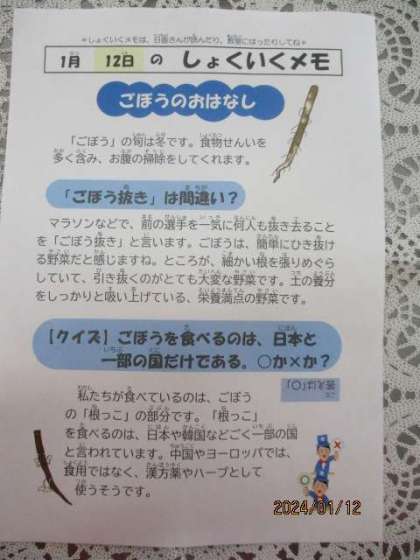 ＊しょくいくメモは、日直さんが読んだり、教室にはったりしてね＊
1月 12日 の しょくいくメモ
ごぼうのおはなし
「ごぼう」の旬は冬です。食物せんいを
多く含み、お腹の掃除をしてくれます。
「ごぼう抜き」は間違い？
マラソンなどで、前の選手を一気に何人も抜き去ること
を「ごぼう抜き」と言います。ごぼうは、簡単にひき抜け
る野菜だと感じますね。ところが、細かい根を張りめぐら
していて、引き抜くのがとても大変な野菜です。土の養分
をしっかりと吸い上げている、栄養満点の野菜です。
【クイズ】ごぼうを食べるのは、日本と
一部の国だけである。○か×か？
答えは「○」
私たちが食べているのは、ごぼう
の「根っこ」の部分です。「根っこ」
を食べるのは、日本や韓国などごく一部の国
と言われています。中国やヨーロッパでは、
食用ではなく、漢方薬やハーブとして
使うそうです。
2024/01/12